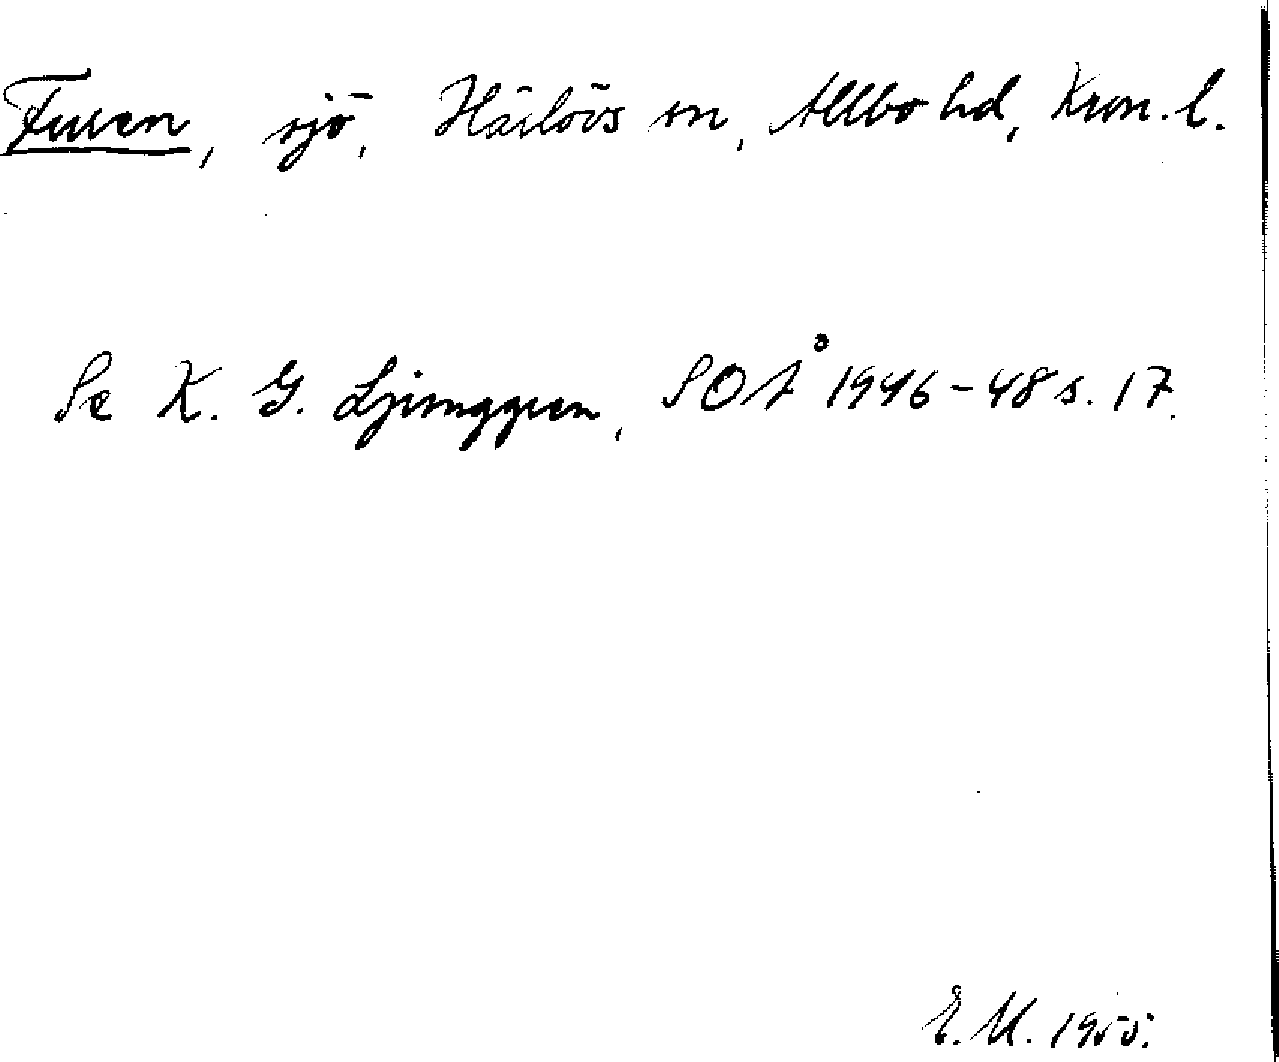 Furen, sjö, Härlövs sn, Allbo hd, Kron. l.
Se K. G. Ljunggren, SOÅ 1946-48 s. 17.
E.M. 1955.